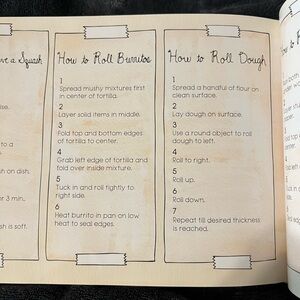 ve a Squash
ise.
to a
h on dish
r 3 min.
sh is soft.
How to Roll Burritos
1
Spread mushy mixtures first
in center of tortilla.
2
Layer solid items in middle.
3
Fold top and bottom edges
of tortilla to center.
4
Grab left edge of tortilla and
fold over inside mixture.
5
Tuck in and roll tightly to
right side.
6
Heat burrito in pan on low
heat to seal edges.
How to Roll Dough
1
Spread a handful of flour on
clean surface.
2
Lay dough on surface.
3
Use a round object to roll
dough to left.
4
Roll to right.
5
Roll up.
6
Roll down.
7
Repeat till desired thickness
is reached.